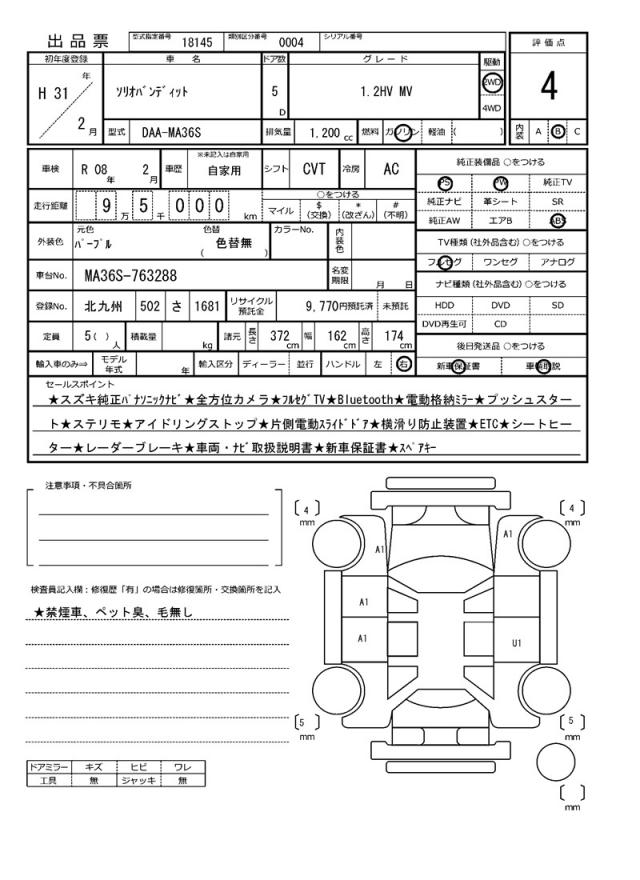 出品票 型式指定番号 18145 類別区分番号 0004 シリアル番号
評価点
4
内装 A B C
初年度登録 車名 ドア数 グレード 駆動
H 31 年 2 月
ソリオバンディット 5 D 1.2HV MV 2WD 4WD
型式 DAA-MA36S 排気量 1,200 cc 燃料 ガソリン 軽油 ( )
車検 R 08 年 2 月 車歴 ※未記入は自家用 自家用 シフト CVT 冷房 AC
走行距離 9 万 5 千 0 0 0 km
○をつける
マイル $(交換) *(改ざん) #(不明)
外装色 元色 パープル 色替 ( 色替無 ) カラーNo. 内装色
車台No. MA36S-763288 名変期限 月 日
登録No. 北九州 502 さ 1681 リサイクル預託金 9,770円預託済 未預託
定員 5( ) 人 積載量 kg 諸元 長さ 372 cm 幅 162 cm 高さ 174 cm
輸入車のみ⇒ モデル年式 年 輸入区分 ディーラー 並行 ハンドル 左 右
純正装備品 ○をつける
PS PW 純正TV
純正ナビ 革シート SR
純正AW エアB ABS
TV種類 (社外品含む) ○をつける
フルセグ ワンセグ アナログ
ナビ種類 (社外品含む) ○をつける
HDD DVD SD
DVD再生可 CD
後日発送品 ○をつける
新車保証書 車輌取説
セールスポイント
★スズキ純正パナソニックナビ★全方位カメラ★フルセグTV★Bluetooth★電動格納ミラー★プッシュスター
ト★ステリモ★アイドリングストップ★片側電動スライドドア★横滑り防止装置★ETC★シートヒー
ター★レーダーブレーキ★車両・ナビ取扱説明書★新車保証書★スペアキー
注意事項・不具合箇所
検査員記入欄:修復歴「有」の場合は修復箇所・交換箇所を記入
★禁煙車、ペット臭、毛無し
ドアミラー キズ ヒビ ワレ
工具 無 ジャッキ 無
4 mm
4 mm
A1
A1
A1
A1
U1
5 mm
5 mm
mm